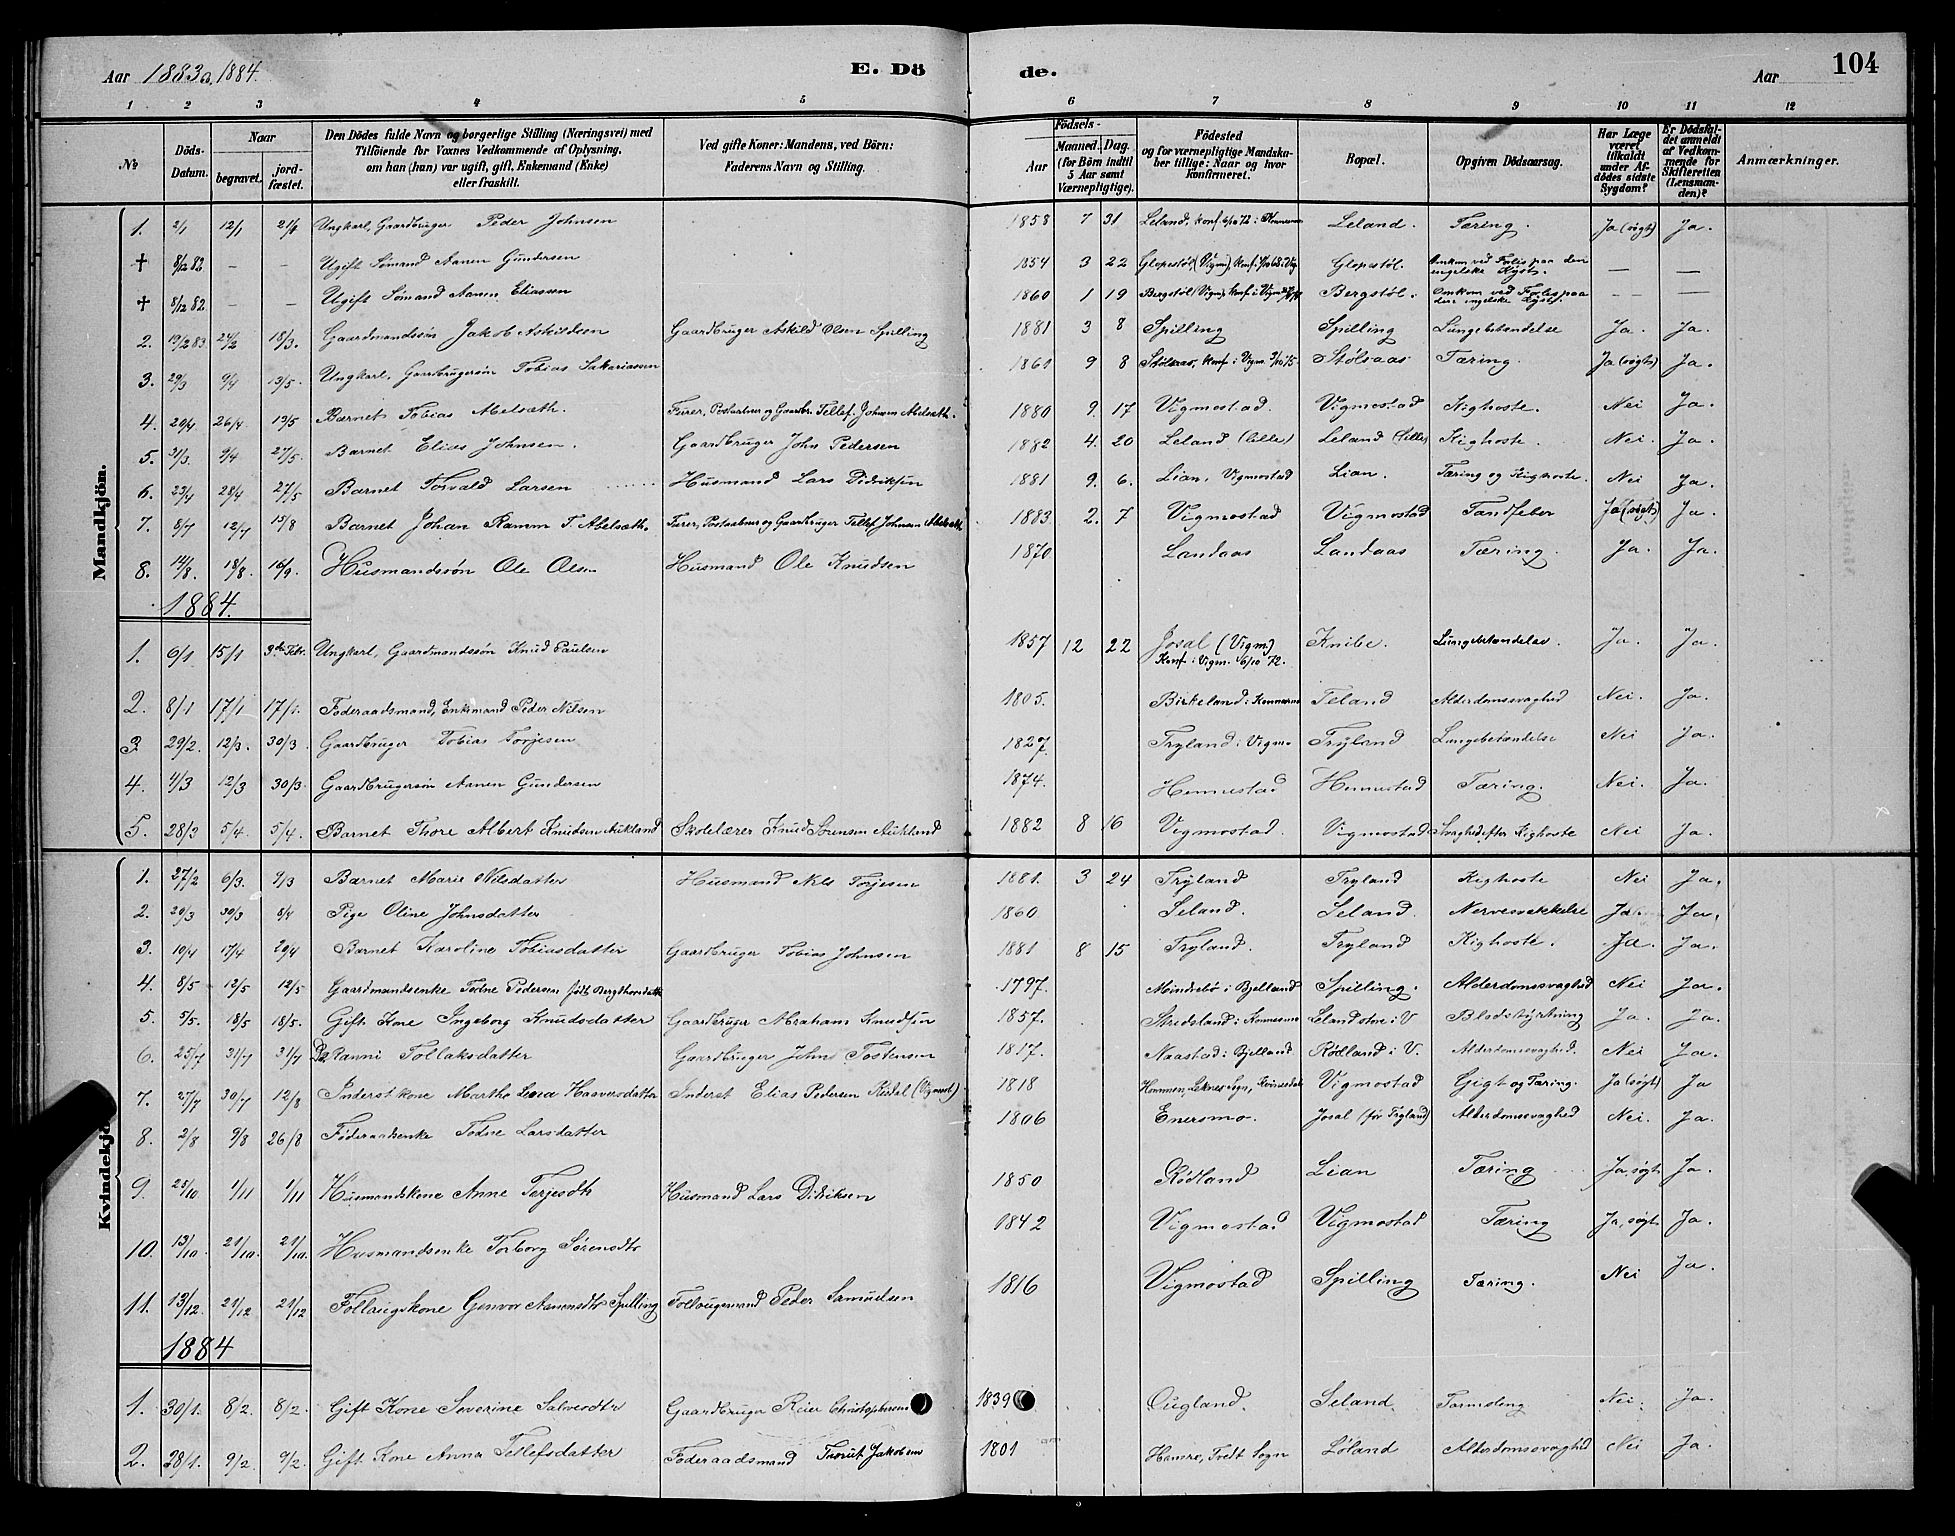 Aar 1883 1884. E. Dö de. Aar 104
1 2 3 4 5 6 7 8 9 10 11 12
No Döds-Datum. Naar begravet. jord-fæstet. Den Dödes fulde Navn og borgerlige Stilling (Næringsvei) med Tilföiende for Voxnes Vedkommende af Oplysning, om han (han) var ugift, gift, Enkemand (Enke) eller fraskilt. Ved gifte Koner: Mandens, ved Börn: Faderens Navn og Stilling. Födsels- Aar Maaned. Dag. (for Börn indtil 5 Aar samt Værnepligtige). Födested og for værnepligtige Mandskaber tillige: Naar og hvor konfirmeret. Bopæl. Opgiven Dödsaarsag. Har Læge været tilkaldt under Afdödes sidste Sygdom? Er Dödsfaldet anmeldt af Vedkommende for Skifteretten (Lensmanden)? Anmærkninger.
Mandkjön.
1. 2/1 12/1 21/1 Ungkarl, Gaardbruger Peder Johnsen 1858 7 31 Leland, konf. 6/10 72 i Leland. Tæring. Ja (søgt) Ja.
† 8/12 82 – – Ugift Sømand Aanen Gundersen 1854 3 22 Glopestøl (Vigm), Konf. Glopestøl. Omkom ved Forlis paa den engelske Kyst. – –
† 8/12 82. – – Ugift Sømand Aanen Eliassen 1860 1 19 Bergstøl (Vigm), konf. i Vigm Bergstøl. Omkom ved Forlis paa den engelske Kyst. – –
2. 19/2 83. 24/2 18/3. Gaardmandssøn Jakob Askildsen Gaardbruger Askild Olsen Spilling 1881 3 8 Spilling Spilling Lungebetændelse Ja. Ja.
3. 29/3 9/4 13/5. Ungkarl, Gaardbrugersøn Tobias Sakariassen 1861 9 8 Stølsaas, Konf. i Vigm. 3/10 75 Stølsaas Tæring. Ja (søgt) Ja.
4. 20/4 26/4 13/5 Barnet Tobias Abelsæth. Furer, Postaabner og Gaardbr. Tellef Johnsen Abelsæth. 1880 9. 17 Vigmostad. Vigmostad Kighoste. Nei Ja.
5. 31/3. 9/4 27/5. Barnet Elias Johnsen. Gaardbruger John Pedersen 1882 4. 20 Leland (lille) Leland (lille) Kighoste. Nei. Ja.
6. 23/4 28/4 27/5 Barnet Torvald Larsen Husmand Lars Didriksen 1881 9. 6. Lian, Vigmostad Lian. Tæring og Kighoste. Nei Ja.
7. 8/7 12/7 15/8 Barnet Johan Ramm T. Abelsæth. Furer, Postaabner og Gaardbruger Tellef Johnsen Abelsæth 1883 2. 7 Vigmostad Vigmostad Tandfeber Ja (søgt) Ja.
8. 14/8. 18/8. 16/9. Husmandssøn Ole Olsen Husmand Ole Knudsen 1870 Landaas Landaas Tæring. Ja. Ja.
1884.
1. 6/1 15/1 3die Febr. Ungkarl, Gaardmandssøn Knud Paulsen 1857 12 22 Josal (Vigm) Konf. i Vigm. 6/10 72. Knibe. Lungebetændelse Ja. Ja.
2. 8/1 17/1 17/1. Føderaadsmand, Enkemand Peder Nilsen 1805. Birkeland i Konnesmo Teland Alderdomssvaghed Nei. Ja.
3 29/2. 12/3. 30/3 Gaardbruger Tobias Torjesen 1827. Tryland i Vigmo Tryland Lungebetændelse Nei Ja.
4. 4/3 12/3 30/3. Gaardbrugersøn Aanen Gundersen 1874. Hennestad Hennestad Tæring. Nei Ja.
5. 28/3 5/4. 5/4. Barnet Thore Albert Knudsen Aukland Skolelærer Knud Sørensen Aukland 1882 8 16 Vigmostad. Vigmostad Svaghed efter Kighoste Nei Ja.
Kvindekjön.
1. 27/2 6/3. 9/3 Barnet Marie Nilsdatter Husmand Nils Torjesen 1881. 3 24 Tryland Tryland Kighoste Nei Ja.
2. 20/3 30/3 8/4 Pige Oline Johnsdatter 1860. Seland. Seland. Nervesvækkelse Ja. Ja.
3. 10/4 17/4 20/4 Barnet Karoline Tobiasdatter Gaardbruger Tobias Johnsen 1881 8 15 Tryland. Tryland Kighoste. Ja. Ja.
4. 8/5 12/5 12/5 Gaardmandsenke Todne Pedersen født Bergthorsdatter 1797. Mindebø i Bjelland Spilling. Alderdomssvaghed Nei Ja.
5. 5/5. 18/5 18/5. Gift Kone Ingeborg Knudsdatter Gaardbruger Abraham Knudsen 1857. Stedsland i Konnesmo Leland store i V Blodstyrtning Ja. Ja.
6. 25/7 31/7 31/7 Ranni Tollaksdatter Gaardbruger Johns Tostensen 1817. Naastad i Bjelland Rødland i V. Alderdomssvaghed. Nei Ja.
7. 27/7 30/7 12/8 Inderstkone Marthe Lena Haaversdatter Inderst Elias Pedersen Risdal (Vigmost) 1818 Hommen, Leknes Sogn, Kvinesdal Vigmostad Gigt og Tæring. Ja (søgt) Ja
8. 2/8 9/8 26/8 Føderaadsenke Todne Larsdatter 1806 Enersmo. Josal (før Tryland) Alderdomssvaghed Nei. Ja.
9. 25/10 1/11 1/11 Husmandskone Anne Torjesdtr Husmand Lars Didriksen 1850 Rødland Lian Tæring Ja, søgt Ja.
10. 13/10. 21/10. 21/10. Husmandsenke Torborg Sørensdtr 1842 Vigmostad Vigmostad Tæring Ja, søgt Ja.
11. 13/12. 21/12 21/12 Follaugskone Gunvor Aanensdtr Spilling Follaugsmand Peder Samuelsen 1816 Vigmostad Spilling Tæring. Nei Ja.
1884
1. 30/1. 8/2. 8/2. Gift Kone Severine Salvesdtr Gaardbruger Reier Christophersen 1839 Ougland. Seland. Nei. Ja.
2. 28/1. 9/2. 9/2. Gift Kone Anna Tellefsdatter Føderaadsmand Jakobsen 1801 Tvedt Sogn Løland Alderdomssvaghed Nei Ja.